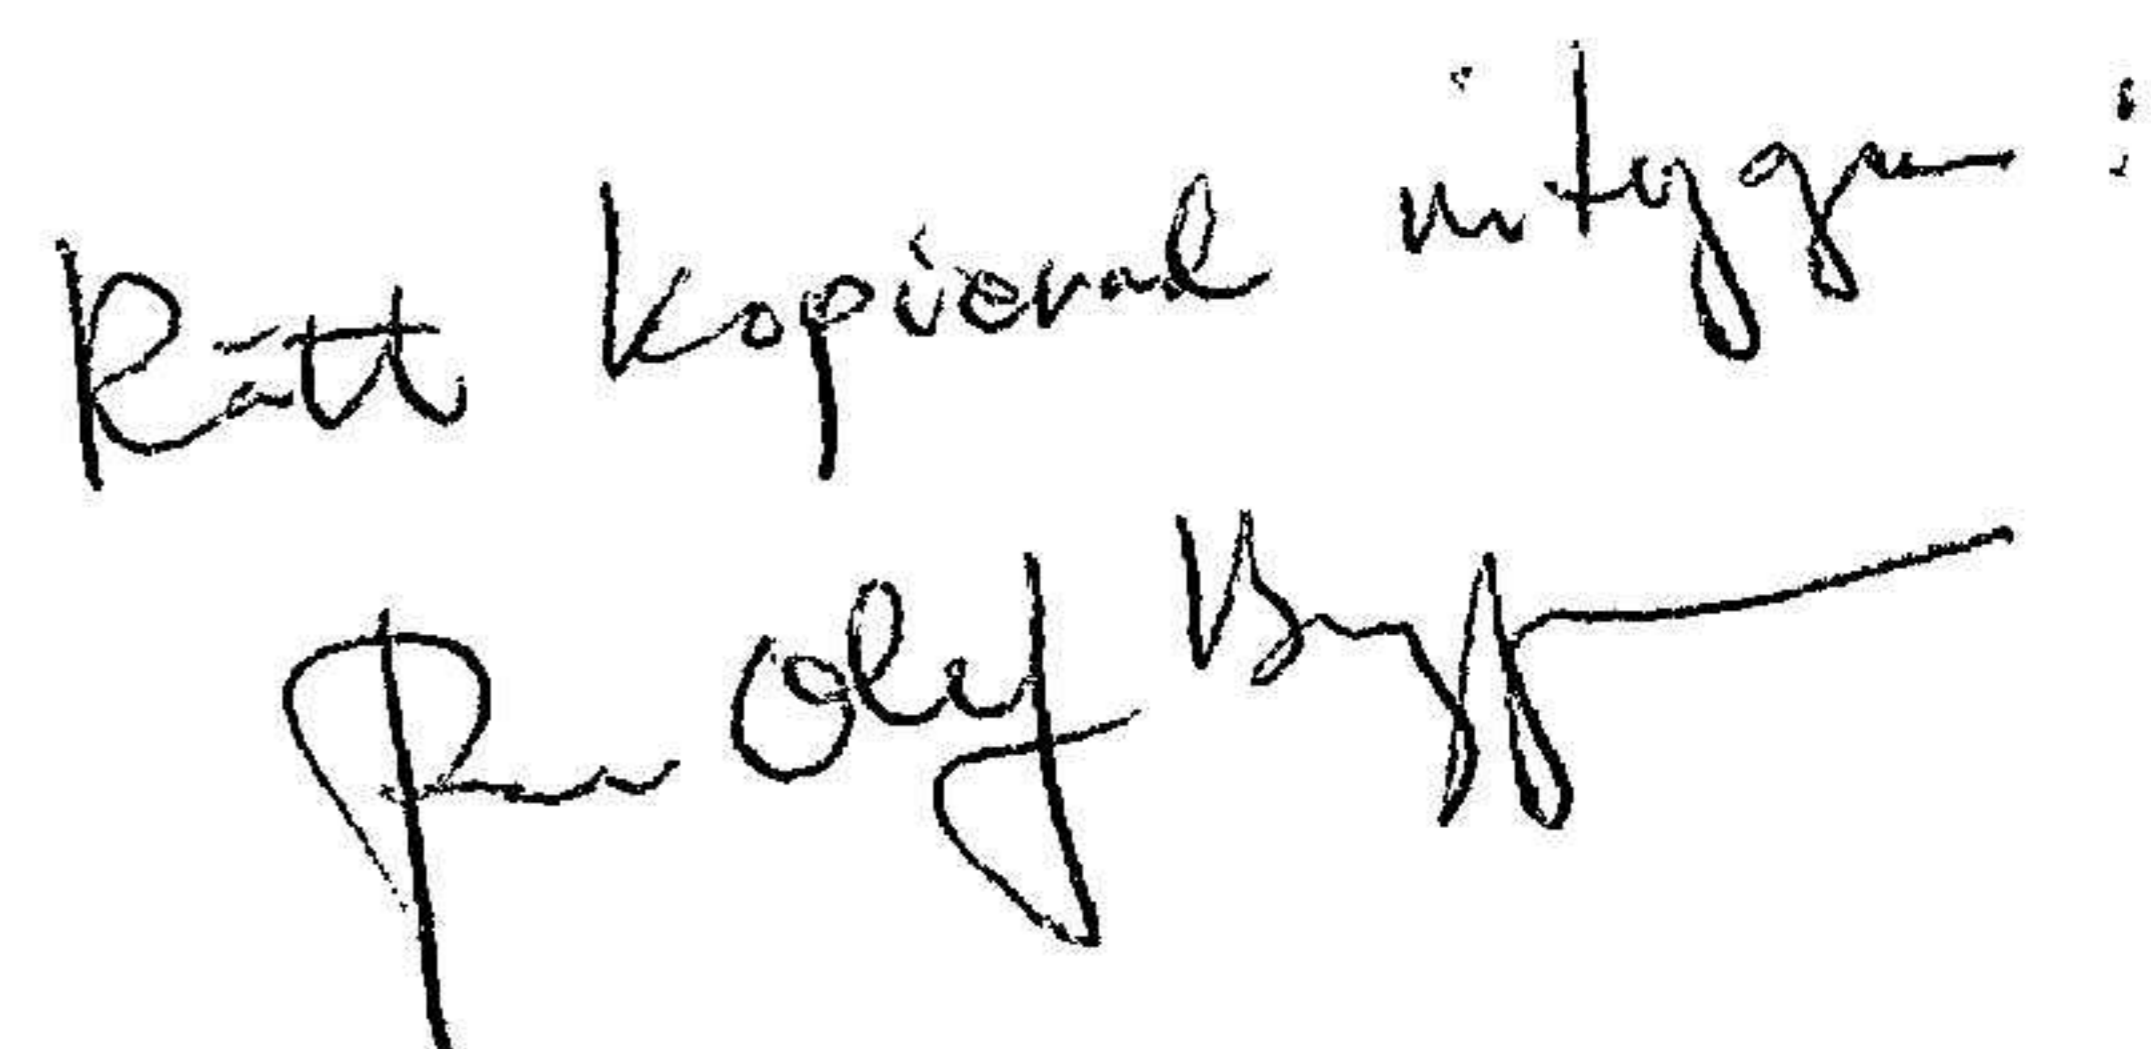 Rätt kopierad intygar :
Per Olof